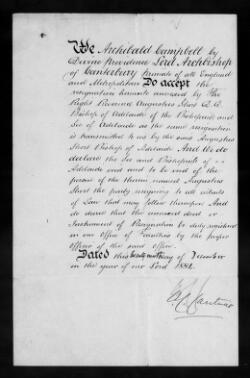 We Archibald Campbell by
Divine Providence Lord Archbishop
of Canterbury Primate of all England
and Metropolitan Do accept the
resignation hereunto annexed by the
Right Reverend Augustus Short D.D.
Bishop of Adelaide of the Bishopric and
See of Adelaide as the same resignation
is transmitted to us by the said Augustus
Short Bishop of Adelaide And We do
declare the See and Bishopric of
Adelaide void and to be void of the
person of the therein named Augustus
Short the party resigning to all intents
of Law that may follow thereupon And
do decree that the annexed deed or
Instrument of Resignation be duly registered
in our Office of Faculties by the proper
Officer of the said Office.
Dated this day of December
in the year of our Lord 1881
A. C. Cantuar